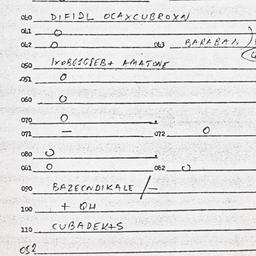 060 DIFIDL OCAXCUBROXN
061 O
062 O 063 BARABAN
050 IXOBEIGSEB+ AMATONE
051 O
060 O
070 O
071 — 072 O
080 O
061 O 062 O
090 BAZECNDIKALE /-
100 + QH
110 CUBADEKTS
052